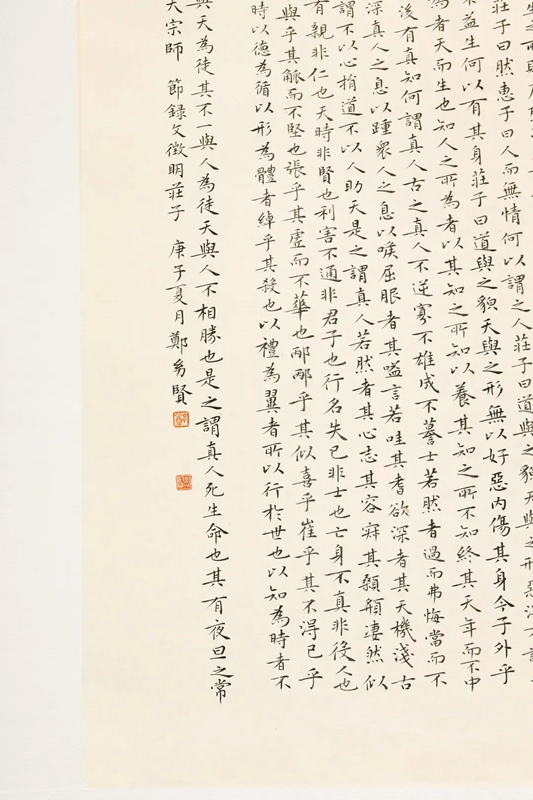 莊子曰然惠子曰人而無情何以謂之人莊子曰道與之貌天與之形惡
不益生何以有其身莊子曰道與之貌天與之形無以好惡內傷其身今子外乎
為者天而生也知人之所為者以其知之所知以養其知之所不知終其天年而不中
後有真知何謂真人古之真人不逆寡不雄成不謩士若然者過而弗悔當而不
深真人之息以踵眾人之息以喉屈服者其嗌言若哇其耆欲深者其天機淺古
謂不以心捐道不以人助天是之謂真人若然者其心志其容寂其顙頯淒然似
有親非仁也天時非賢也利害不通非君子也行名失己非士也亡身不真非役人也
與乎其觚而不堅也張乎其虛而不華也邴邴乎其似喜乎崔乎其不得已乎
時以德為循以形為體者綽乎其殺也以禮為翼者所以行於世也以知為時者不
與天為徒其不一與人為徒天與人不相勝也是之謂真人死生命也其有夜旦之常
大宗師 節錄文徵明莊子 庚子夏月鄭賢